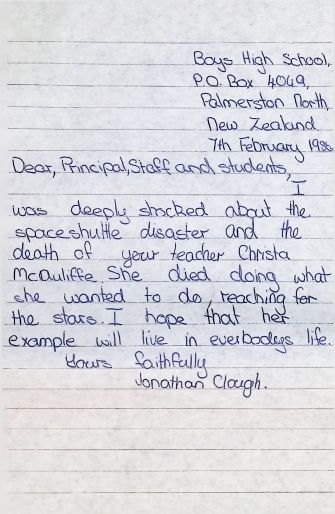 Boys High School,
P.O. Box 4049,
Palmerston North,
New Zealand.
7th February 1986
Dear, Principal, Staff and students,
I
was deeply shocked about the
spaceshuttle disaster and the
death of your teacher Christa
McAuliffe. She died doing what
she wanted to do, reaching for
the stars. I hope that her
example will live in everbodys life.
Yours faithfully
Jonathan Clough.